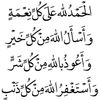 الْحَمْدُ لِلَّهِ عَلَى كُلِّ نِعْمَةٍ
وَ أَسْأَلُ اللَّهَ مِنْ كُلِّ خَيْرٍ
وَ أَعُوذُ بِاللَّهِ مِنْ كُلِّ شَرٍّ
وَ أَسْتَغْفِرُ اللَّهَ مِنْ كُلِّ ذَنْبٍ